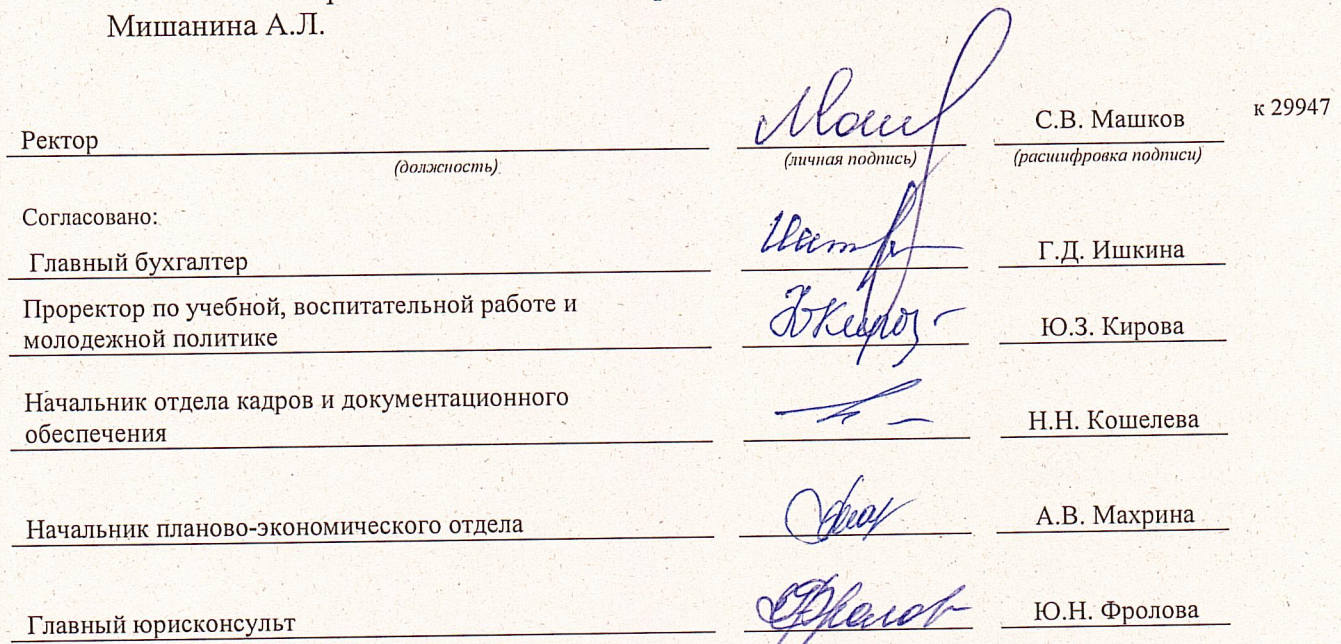 Мишанина А.Л.
Ректор С.В. Машков к 29947
(должность) (личная подпись) (расшифровка подписи)
Согласовано:
Главный бухгалтер Г.Д. Ишкина
Проректор по учебной, воспитательной работе и
молодежной политике Ю.З. Кирова
Начальник отдела кадров и документационного
обеспечения Н.Н. Кошелева
Начальник планово-экономического отдела А.В. Махрина
Главный юрисконсульт Ю.Н. Фролова